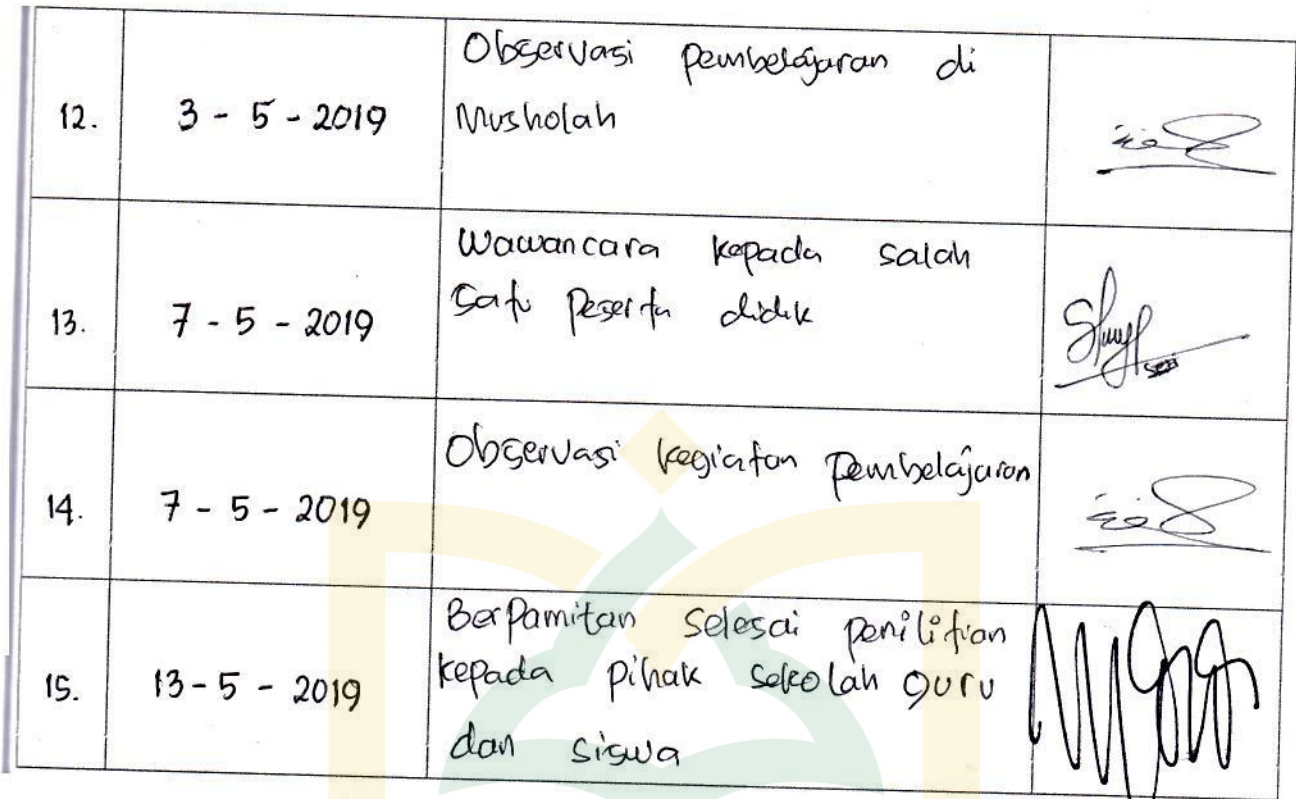 12. 3 - 5 - 2019 Observasi pembelajaran di
Musholah
13. 7 - 5 - 2019 Wawancara kepada salah
satu peserta didik
14. 7 - 5 - 2019 Observasi kegiatan pembelajaran
15. 13 - 5 - 2019 Berpamitan selesai penilitian
kepada pihak sekolah guru
dan siswa